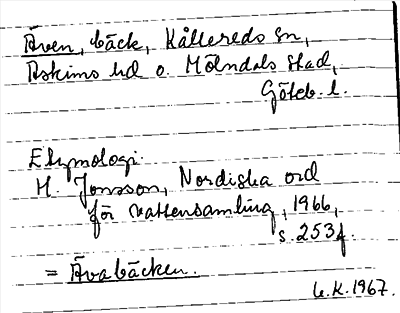 Även, bäck, Kållereds sn,
Askims hd o. Mölndals stad,
Göteb. l.
Etymologi.
H. Jonsson, Nordiska ord
för vattensamling, 1966,
s. 253f.
= Ävabäcken.
K. 1967.